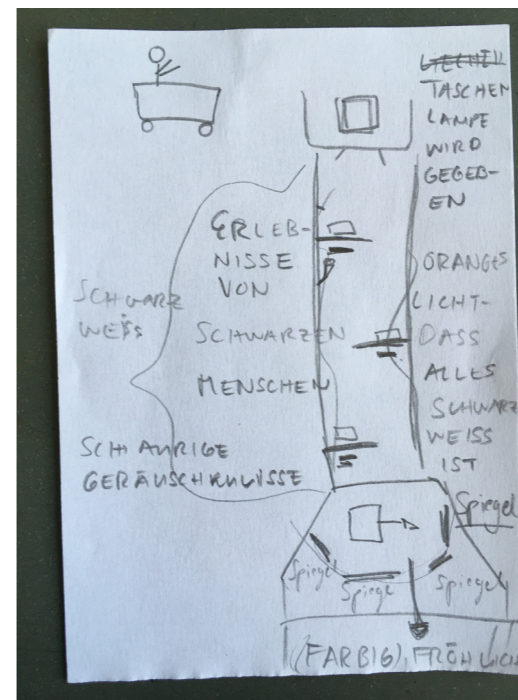 TASCHEN
LAMPE
WIRD
GEGEB-
EN
ERLEB-
NISSE
VON
SCHWARZEN
MENSCHEN
SCHWARZ
WEISS
ORANGES
LICHT-
DASS
ALLES
SCHWARZ
WEISS
IST
SCHAURIGE
GERÄUSCHKULISSE
Spiegel
Spiegel
Spiegel
Spiegel
(FARBIG), FRÖHLICH